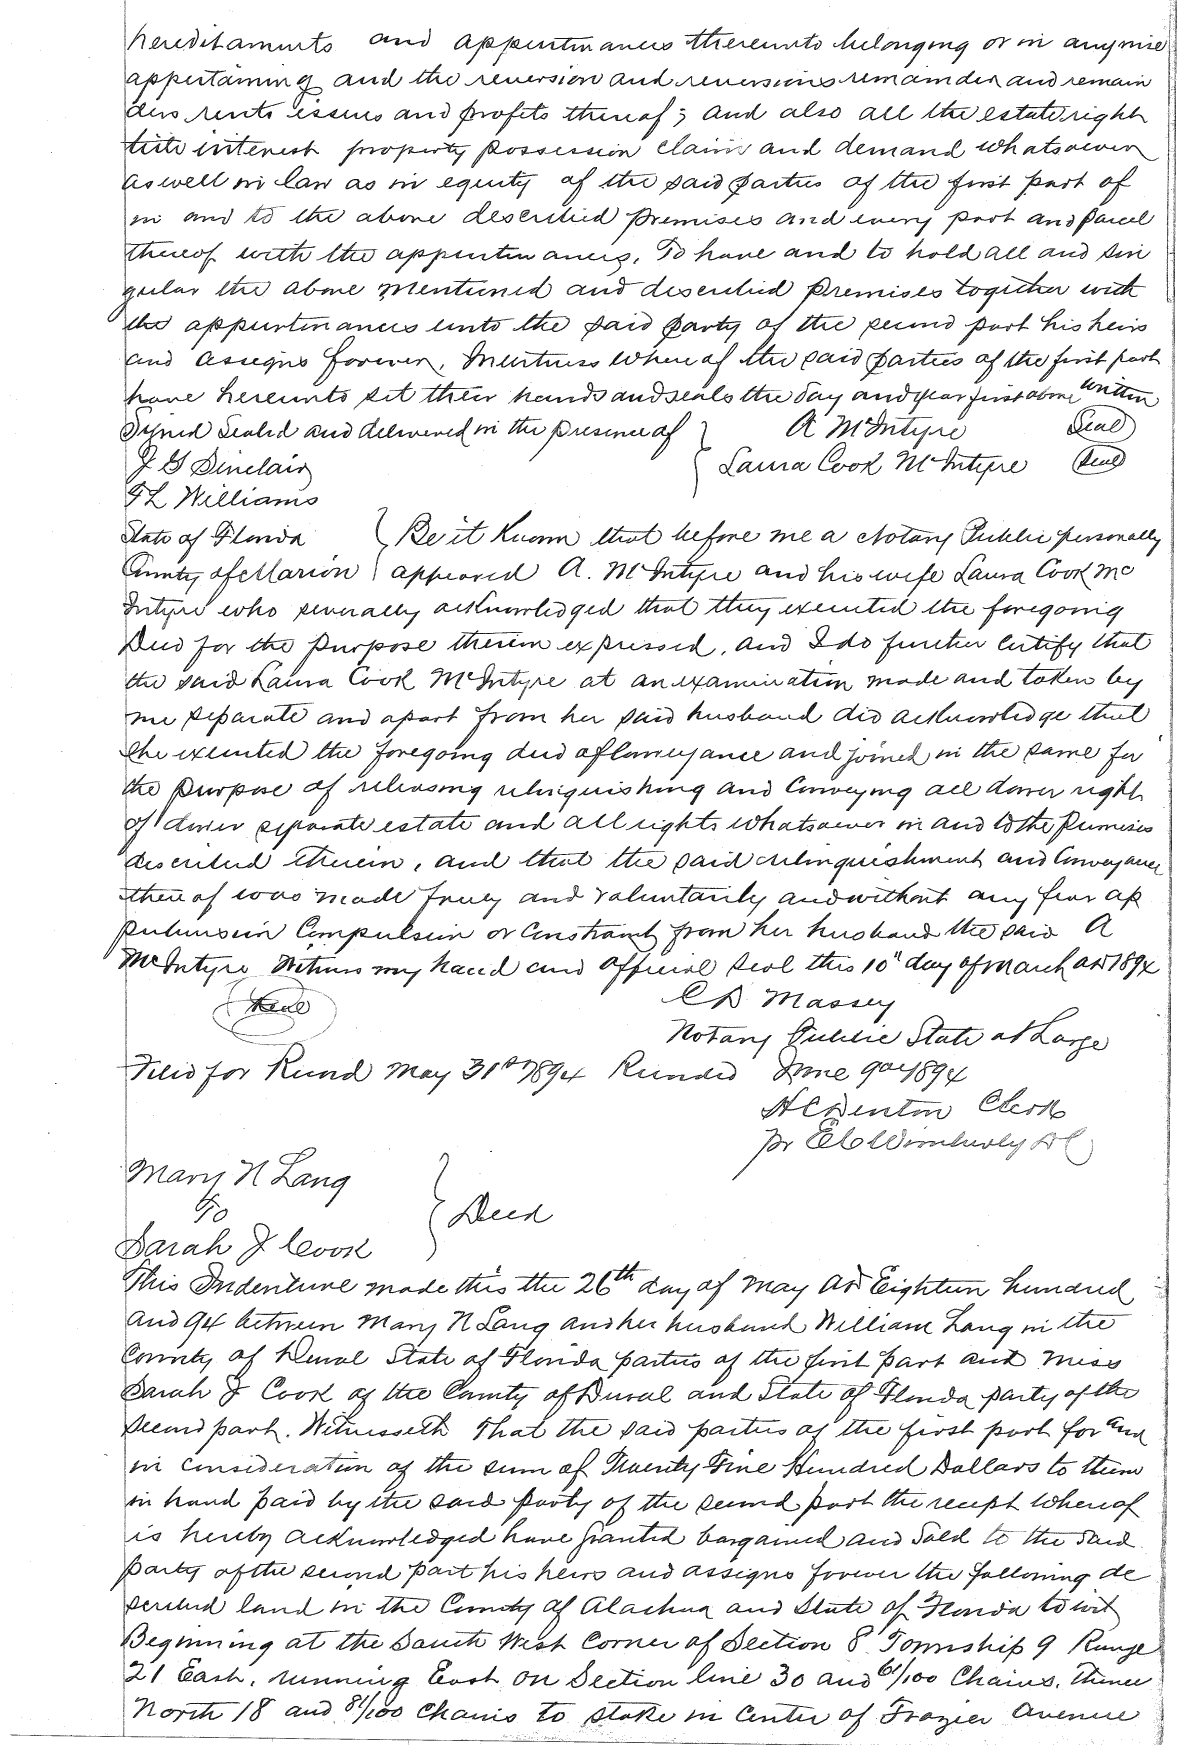 hereditaments and appurtinances thereunto belonging or in anywise
appertaining and the reversion and reversions remainder and remain
ders rents issues and profits thereof; and also all the estate right
title interest property possession claim and demand whatsoever
as well in law as in equity of the said parties of the first part of
in and to the above described premises and every part and parcel
thereof with the appurtinances, To have and to hold all and sin
gular the above mentioned and described premises together with
the appurtinances unto the said party of the second part his heirs
and assigns forever, In witness where of the said parties of the first part
have hereunto set their hands and seals the day and year first above written
Signed Sealed and delivered in the presence of } A McIntyre Seal
J G Sinclair { Laura Cook McIntyre Seal
T L Williams
State of Florida } Be it Known that before me a Notary Public personally
County of Marion } appeared A. McIntyre and his wife Laura Cook Mc
Intyre who severally acknowledged that they executed the foregoing
Deed for the purpose therein expressed, and I do further certify that
the said Laura Cook McIntyre at an examination made and taken by
me separate and apart from her said husband did acknowledge that
she executed the foregoing deed of Conveyance and joined in the same for
the purpose of releasing relinquishing and Conveying all dower right
of dower separate estate and all rights whatsoever in and to the premises
described therein, and that the said relinquishment and Conveyance
there of was made freely and voluntarily and without any fear ap
prehension Compulsion or Constraint from her husband the said A
McIntyre Witness my hand and official Seal this 10" day of March AD 1894
Seal C D Massey
Notary Public State at Large
Filed for Record May 31st 1894 Recorded June 9th 1894
H C Denton Clerk
pr E C Wimberly D C
Mary N Lang
To } Deed
Sarah J Cook
This Indenture made this the 26th day of May AD Eighteen hundred
and 94 between Mary N Lang and her husband William Lang in the
County of Duval State of Florida parties of the first part and Miss
Sarah J Cook of the County of Duval and State of Florida party of the
second part. Witnesseth That the said parties of the first part for and
in consideration of the sum of Twenty Five Hundred Dollars to them
in hand paid by the said party of the second part the receipt whereof
is hereby acknowledged have granted bargained and Sold to the said
party of the second part his heirs and assigns forever the following de
scribed land in the County of Alachua and State of Florida to wit
Beginning at the South West Corner of Section 8 Township 9 Range
21 East, running East on Section line 30 and 61/100 Chains, thence
North 18 and 81/100 Chains to stake in Center of Frazier Avenue